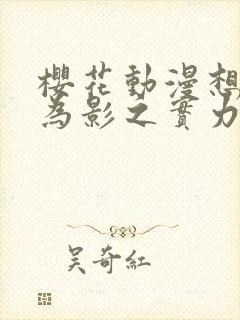 櫻花動漫想
為影之實力
吳奇紅